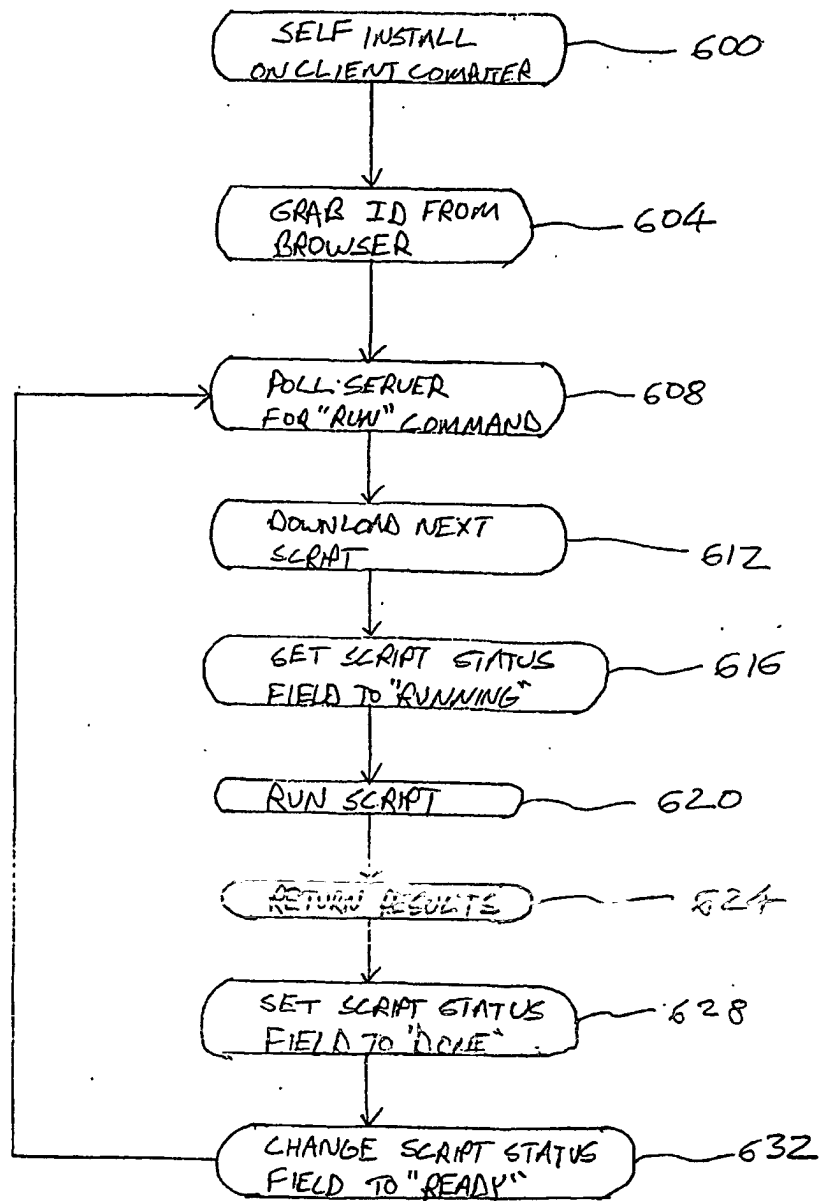 SELF INSTALL
ON CLIENT COMPUTER
600
GRAB ID FROM
BROWSER
604
POLL SERVER
FOR "RUN" COMMAND
608
DOWNLOAD NEXT
SCRIPT
612
SET SCRIPT STATUS
FIELD TO "RUNNING"
616
RUN SCRIPT
620
RETURN RESULTS
624
SET SCRIPT STATUS
FIELD TO "DONE"
628
CHANGE SCRIPT STATUS
FIELD TO "READY"
632